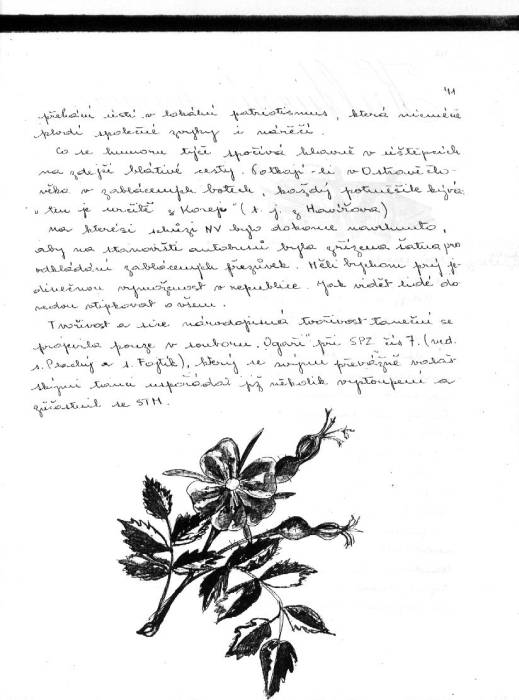 41
přehání ústí v lokální patriotismus, která nicméně
plodí společné zvyky i nářečí.
Co se humoru týče spočívá hlavně v úštěpcích
na zdejší blátivé cesty. Potkají-li v Ostravě člo-
věka v zablácených botech, každý potměšile kývá
"ten je určitě z Korep" (t. j. z Havířova)
na kterési schůzi NV bylo dokonce navrhnuto,
aby na stanovišti autobusů byla zřízena šatna pro
odkládání zablácených přezůvek. Měli bychom prý je-
dinečnou vymoženost v republice. Jak vidět lidé do-
vedou vtipkovat o všem.
Tvořivost a sice národopisná tvořivost taneční se
projevila pouze v souboru "Ogaři" při SPZ čís 7. (ved.
s. Prachý a s. Fojtík), který se svými převážně valaš-
skými tanci uspořádal již několik vystoupení a
zúčastnil se STM.